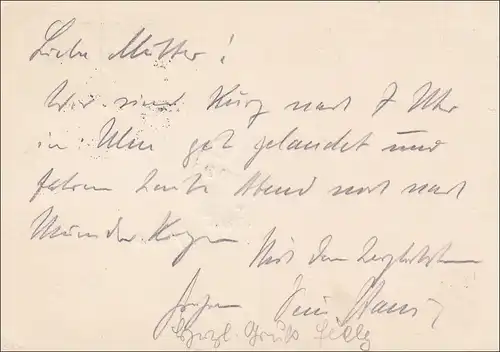 Liebe Mutter!
Wir sind kurz nach 7 Uhr
in Ulm gut gelandet und
fahren heute Abend noch nach

Mit den herzlichsten
Dein Hans
Herzl. Gruß